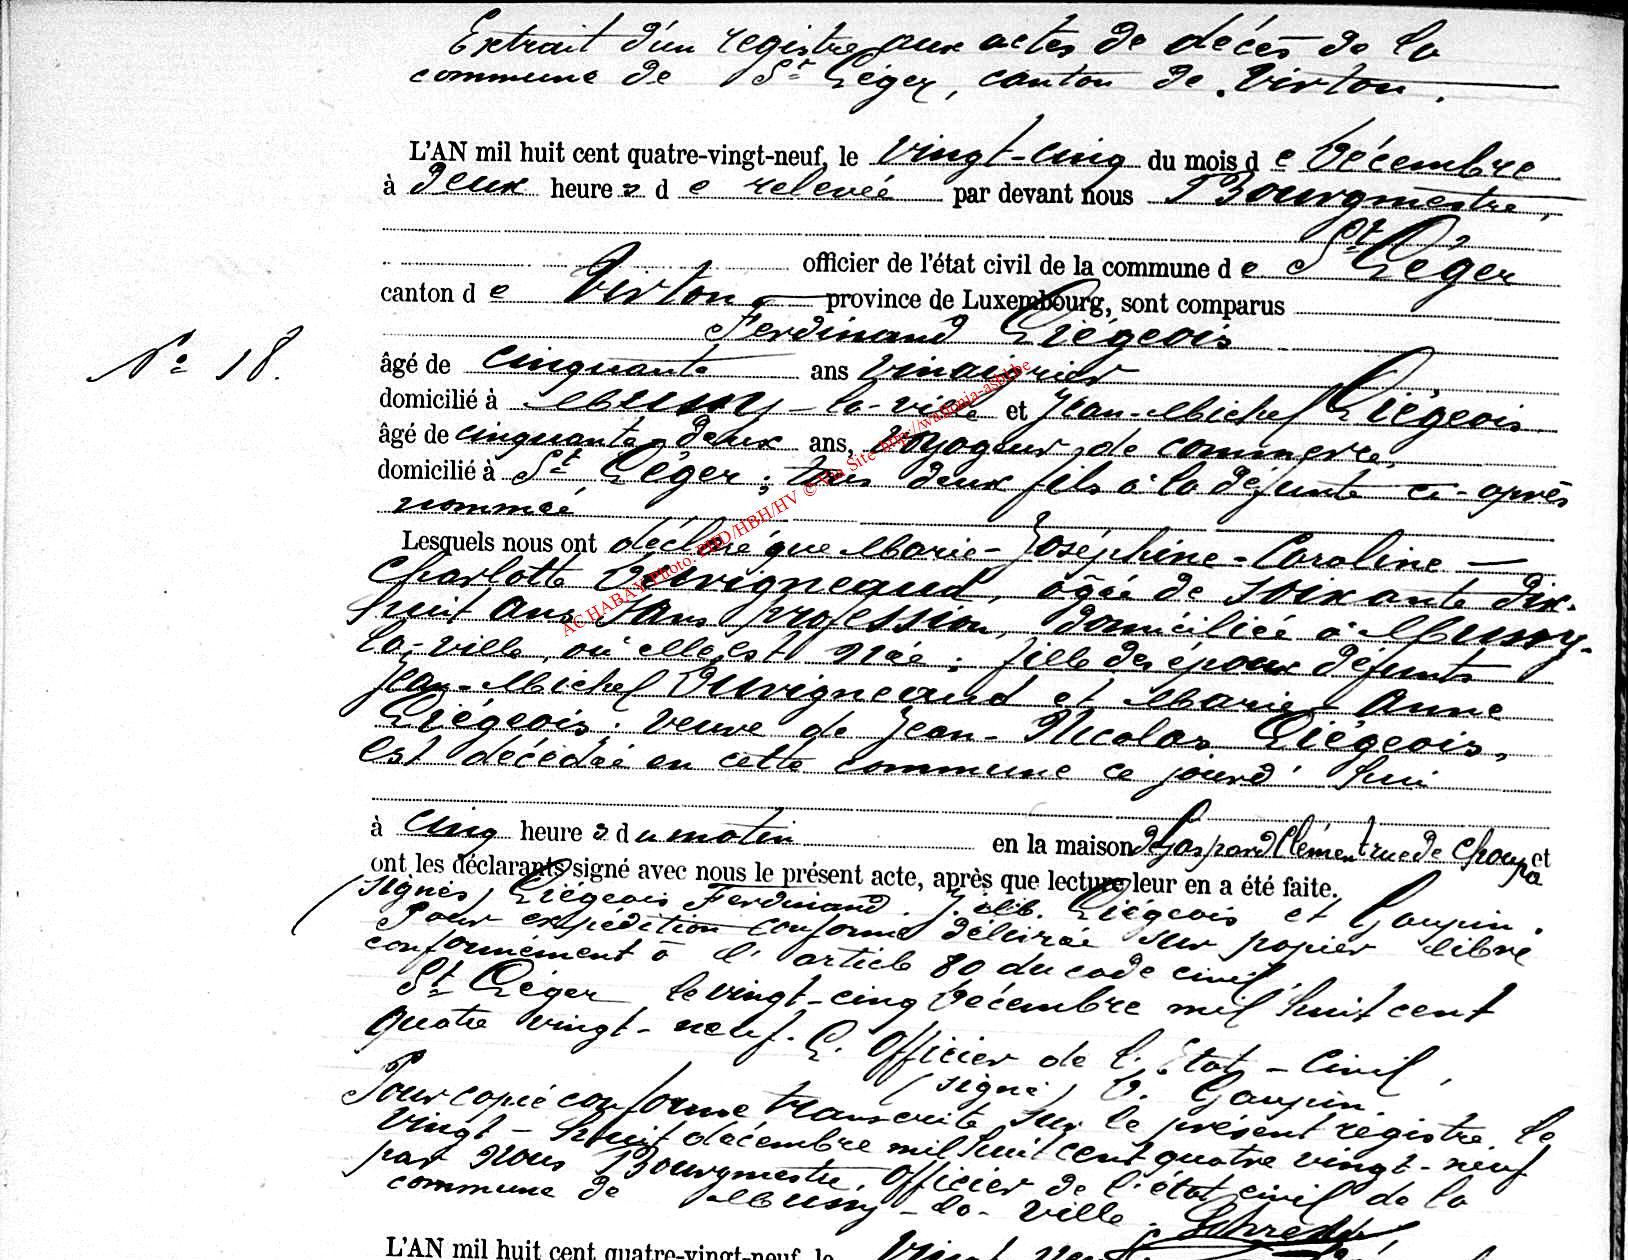 Extrait d'un registre aux actes de décès de la
commune de St Léger, canton de Virton.
L'AN mil huit cent quatre-vingt-neuf, le vingt-cinq du mois de Décembre
à deux heures de relevée par devant nous Bourgmestre,
officier de l'état civil de la commune de St Léger
canton de Virton, province de Luxembourg, sont comparus
Ferdinand Liégeois
N° 18.
âgé de cinquante ans vinaigrier
domicilié à Mussy-la-ville et Jean-Michel Liégeois
âgé de cinquante-deux ans, voyageur de commerce,
domicilié à St Léger; tous deux fils à la défunte ci-après
nommée
Lesquels nous ont déclaré que Marie-Joséphine-Caroline-
Charlotte Duvigneaud, âgée de soixante dix-
huit ans sans profession, domiciliée à Mussy-
la-ville, où elle est née; fille des époux défunts
Jean-Michel Duvigneaud et Marie-Anne
Liégeois; veuve de Jean-Nicolas Liégeois,
est décédée en cette commune ce jourd'hui
à cinq heures du matin en la maison de Gaspard Clément rue de Choupa et
ont les déclarants signé avec nous le présent acte, après que lecture leur en a été faite.
(signés) Liégeois Ferdinand. J. Mib. Liégeois et Goupin.
Pour expédition conforme délivrée sur papier libre
conformément à l'article 80 du code civil,
St Léger le vingt-cinq Décembre mil huit cent
quatre vingt-neuf. L'Officier de l'Etat-Civil,
(signé) V. Goupin.
Pour copie conforme transcrite sur le présent registre, le
vingt-huit décembre mil huit cent quatre vingt-neuf
par nous Bourgmestre, Officier de l'état civil de la
commune de Mussy-la-Ville.
L'AN mil huit cent quatre-vingt-neuf, le vingt
AC HABAY Photo. PHD/HBH/HV © Via Site http://wallonia-asbl.be